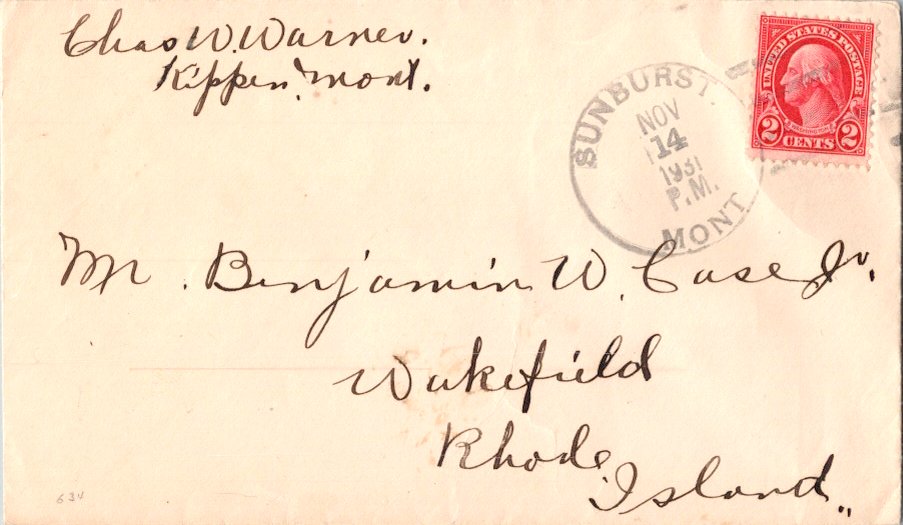 Chas W. Warner.
Kippen, Mont.
UNITED STATES POSTAGE
2 CENTS 2
SUNBURST.
NOV
14
1931
P.M.
MONT
Mr. Benjamin W. Case Jr.
Wakefield
Rhode
Island.,
634